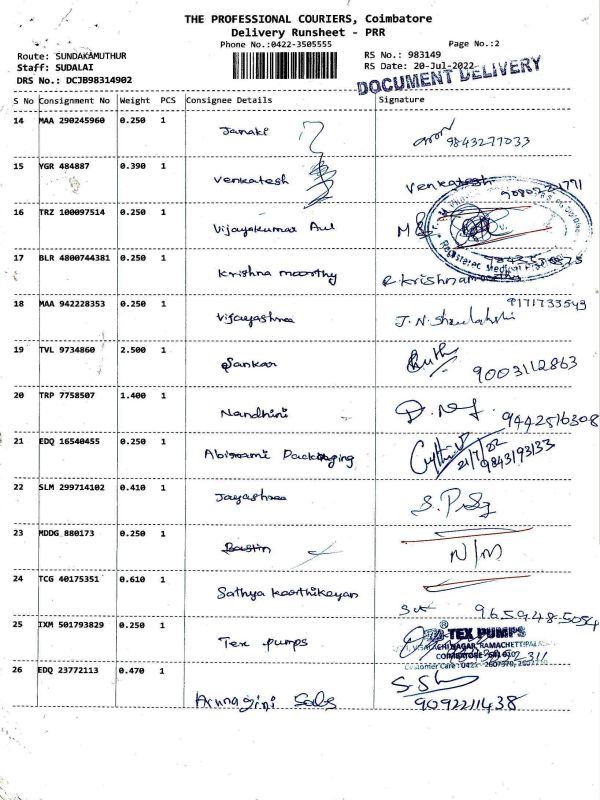 THE PROFESSIONAL COURIERS, Coimbatore
Delivery Runsheet - PRR
Phone No.:0422-3505555
Page No.:2
Route: SUNDAKAMUTHUR
RS No.: 983149
Staff: SUDALAI
RS Date: 20-Jul-2022
DRS No.: DCJB98314902
DOCUMENT DELIVERY
S No Consignment No Weight PCS Consignee Details Signature
14 MAA 290245960 0.250 1 Janaki 9843277033
15 YGR 484887 0.390 1 Venkatesh Venkatesh
16 TRZ 100097514 0.250 1 Vijayakumar
Registered Medical
17 BLR 4800744381 0.250 1 Krishna moorthy
18 MAA 942228353 0.250 1 Vijayashree 9171733549
19 TVL 9734860 2.500 1 Sankar 9003112863
20 TRP 7758507 1.400 1 Nandhini 9442516308
21 EDQ 16540455 0.250 1 Abirami Packaging 21/7/22
9843193133
22 SLM 299714102 0.410 1 Jayashree
23 MDDG 880173 0.250 1 Bastin N/M
24 TCG 40175351 0.610 1 Sathya Karthikeyan
965948-5054
25 IXM 501793829 0.250 1 Tex pumps
TEX PUMPS
26 EDQ 23772113 0.470 1 Arunagini Sales
9092211438